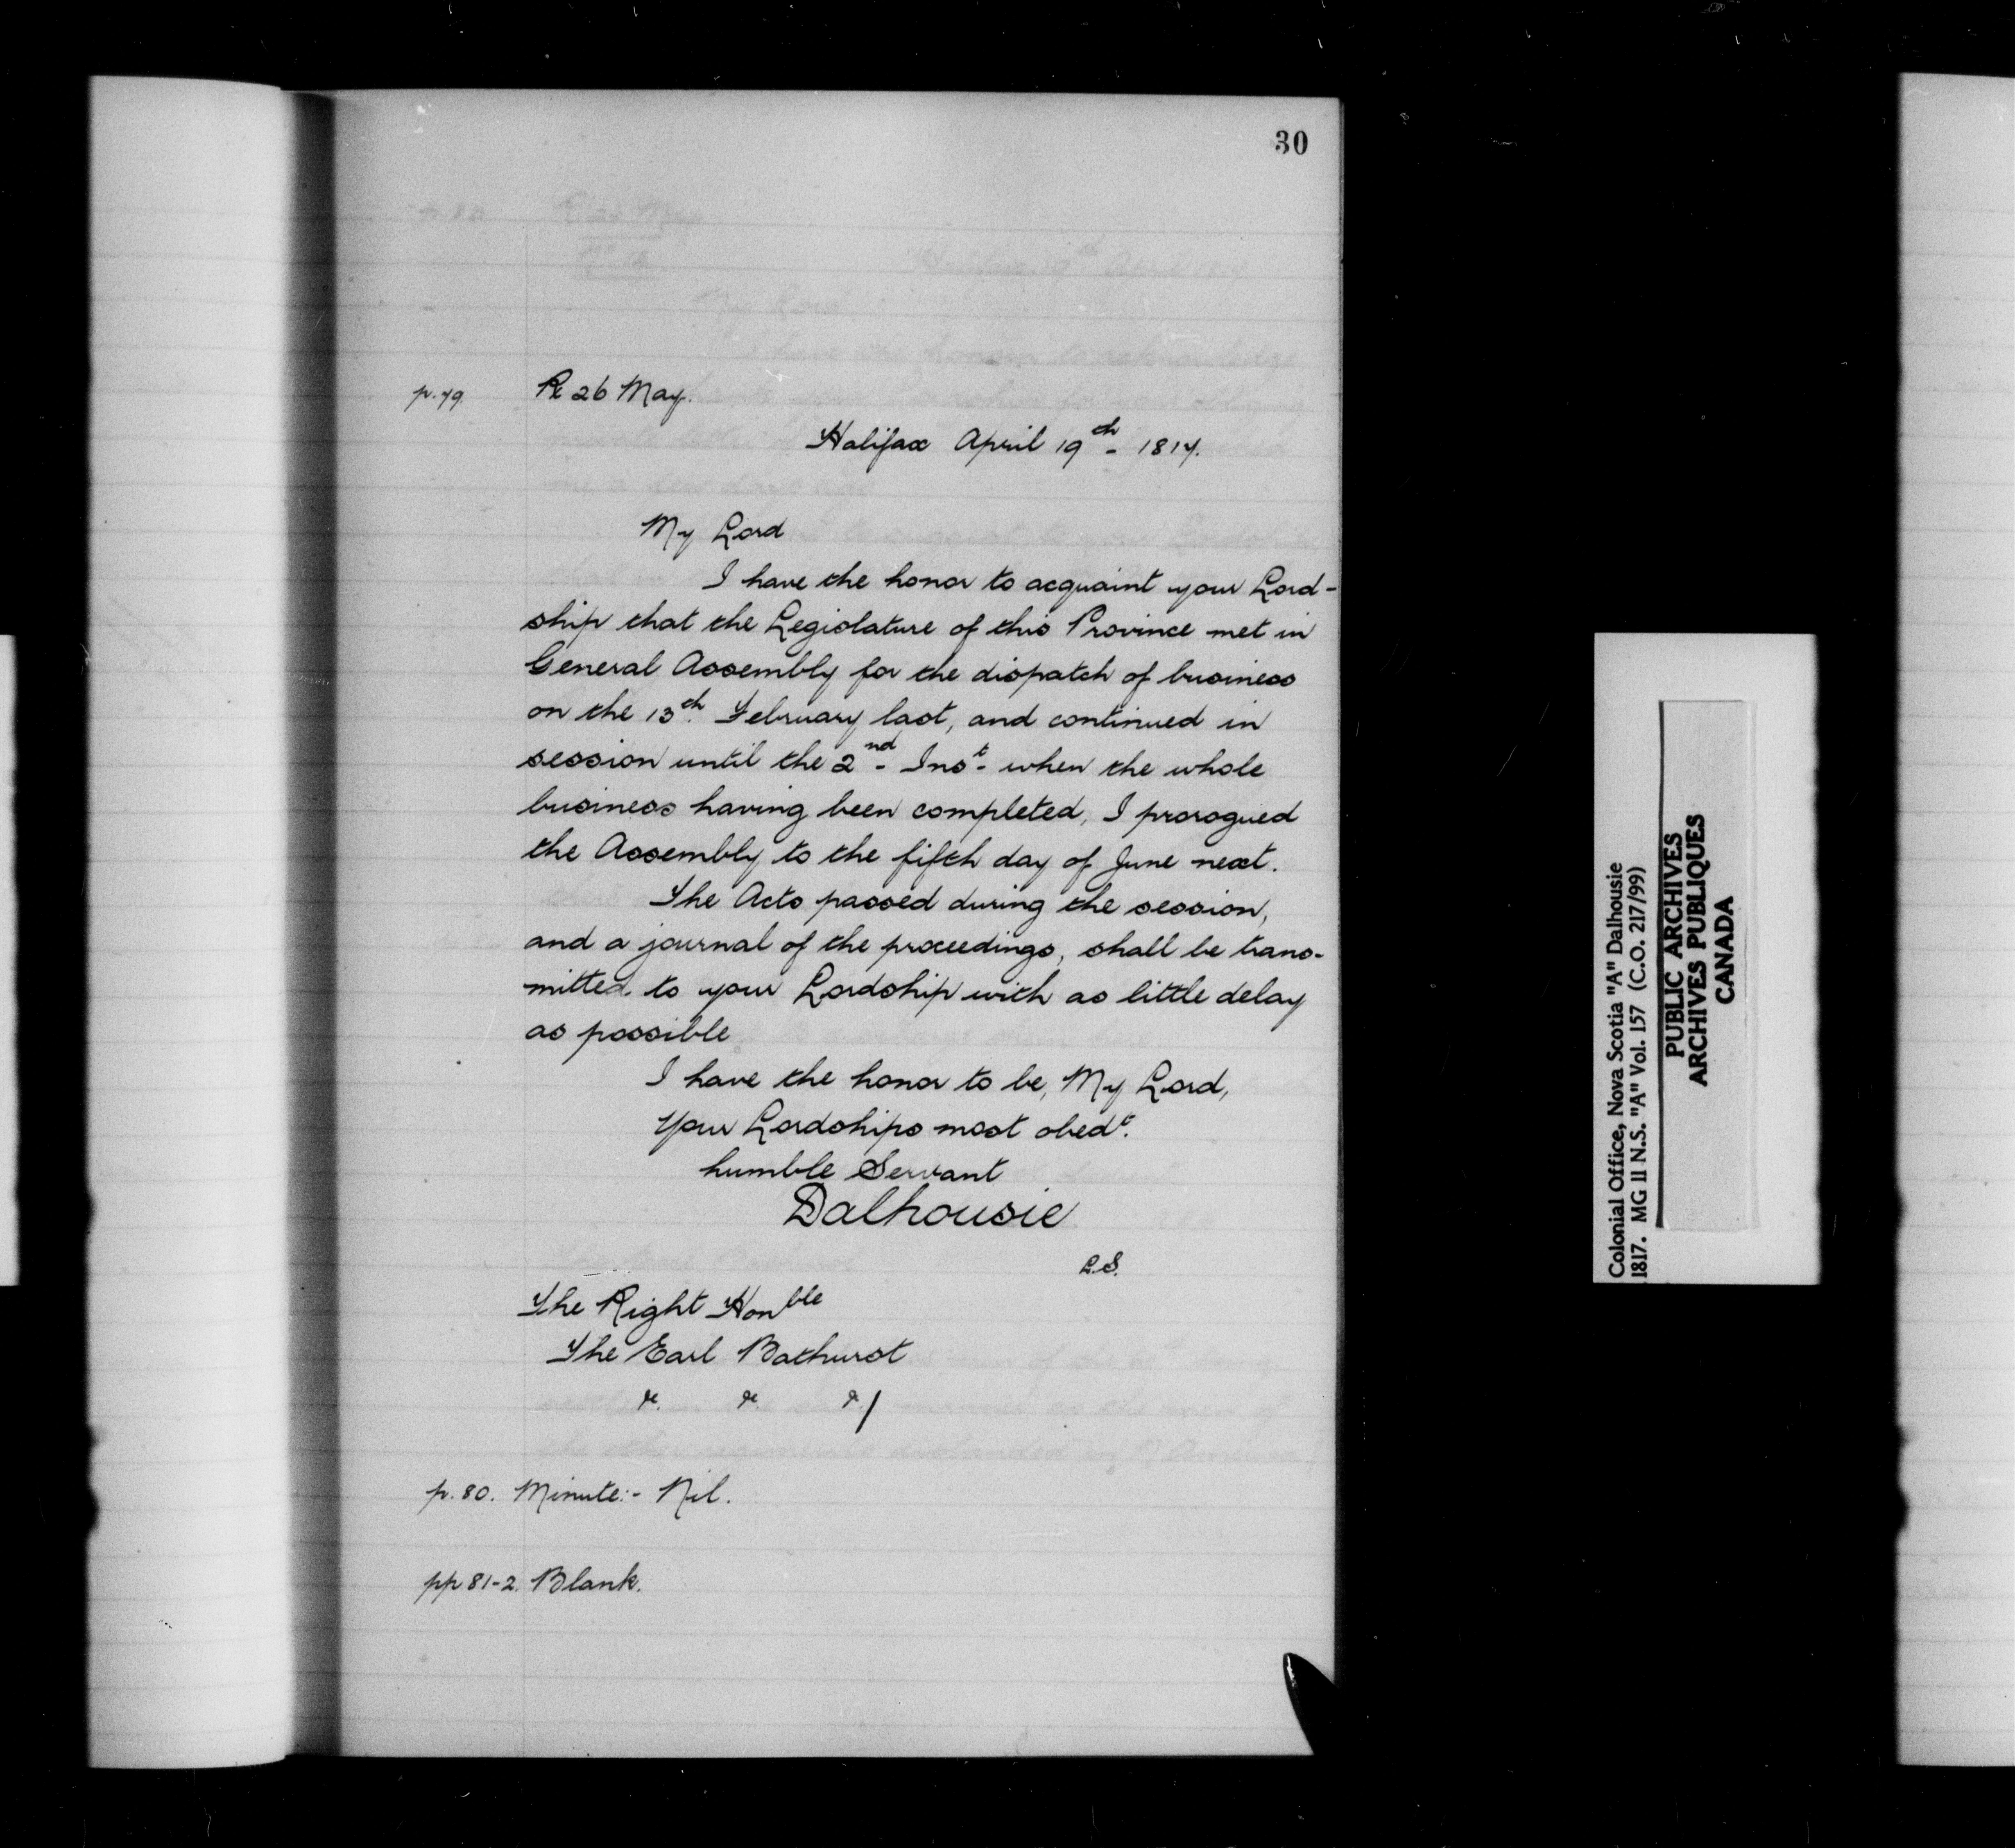 30
p. 79. Rx 26 May.
Halifax April 19th - 1817.
My Lord
I have the honor to acquaint your Lord-
ship that the Legislature of this Province met in
General Assembly for the dispatch of business
on the 13th. February last, and continued in
session until the 2nd - Inst - when the whole
business having been completed, I prorogued
the Assembly to the fifth day of June next.
The Acts passed during the session,
and a journal of the proceedings, shall be trans-
mitted to your Lordship with as little delay
as possible
I have the honor to be, My Lord,
Your Lordships most obedt.
humble Servant
Dalhousie
L.S.
The Right Honble
The Earl Bathurst
&c. &c. &c/
p. 80. Minute:- Nil.
pp 81-2. Blank.
Colonial Office, Nova Scotia "A" Dalhousie
1817. MG 11 N.S. "A" Vol. 157 (C.O. 217/99)
PUBLIC ARCHIVES
ARCHIVES PUBLIQUES
CANADA